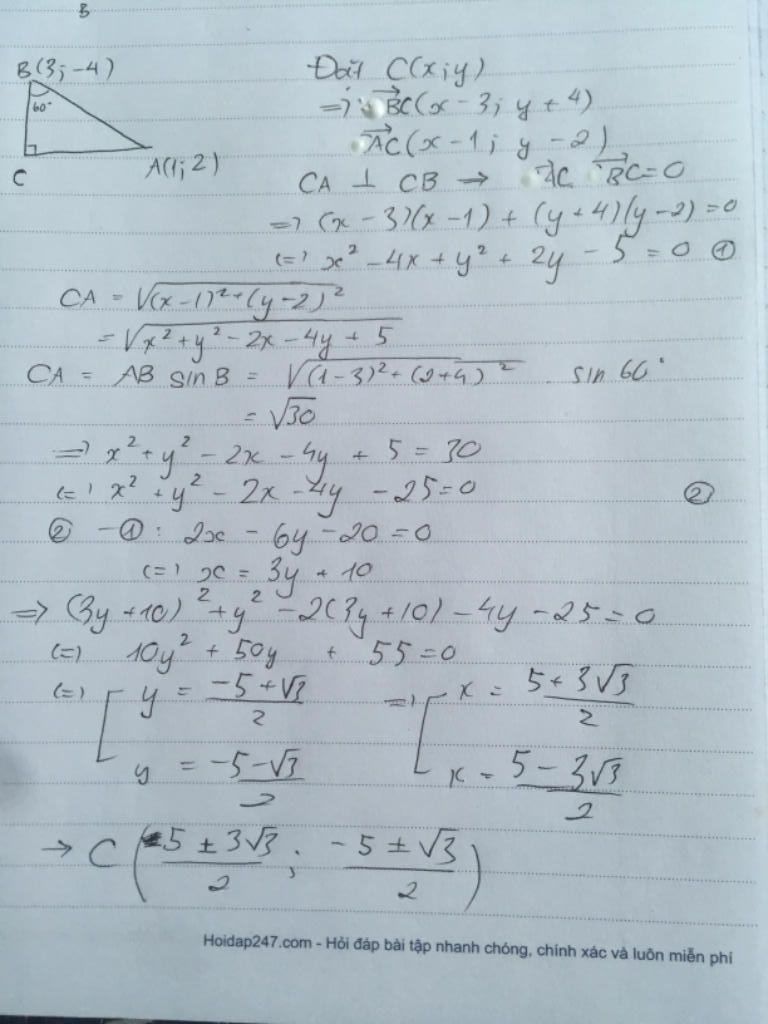 B
B(3; -4)
60°
C
A(1; 2)
Đặt C(x; y)
=> BC(x - 3; y + 4)
AC(x - 1; y - 2)
CA ⊥ CB → AC BC = 0
=> (x - 3)(x - 1) + (y + 4)(y - 2) = 0
<=> x² - 4x + y² + 2y - 5 = 0 ①
CA = √(x - 1)² + (y - 2)²
= √x² + y² - 2x - 4y + 5
CA = AB sin B = √(1 - 3)² + (2 + 4)² . sin 60°
= √30
=> x² + y² - 2x - 4y + 5 = 30
<=> x² + y² - 2x - 4y - 25 = 0 ②
② - ①: 2x - 6y - 20 = 0
<=> x = 3y + 10
=> (3y + 10)² + y² - 2(3y + 10) - 4y - 25 = 0
<=> 10y² + 50y + 55 = 0
<=> [ y = (-5 + √3)/2 => [ x = (5 + 3√3)/2
y = (-5 - √3)/2 x = (5 - 3√3)/2
→ C ( (5 ± 3√3)/2 ; (-5 ± √3)/2 )
Hoidap247.com - Hỏi đáp bài tập nhanh chóng, chính xác và luôn miễn phí